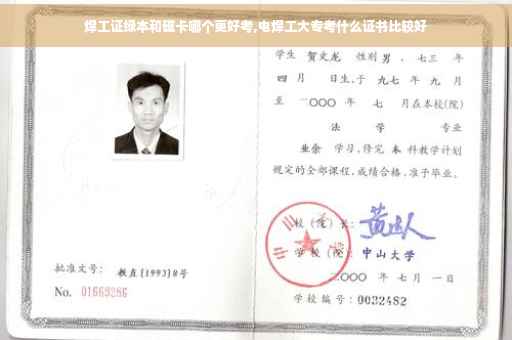 焊工证绿本和碰卡哪个更好考,电焊工大专考什么证书比较好
学生 贺文龙 性别 男 、七三 年
四 月 日生,于 九七 年 九 月
至 二〇〇〇 年 七 月在本校(院)
法 学 专业
业余 学习,修完 本 科教学计划
规定的全部课程,成绩合格,准予毕业。
校(院)长:
学校(院): 中山大学
二〇〇〇 年 七 月 一 日
学校编号: 0032482
批准文号: 教直[1993]8号
No. 01669286